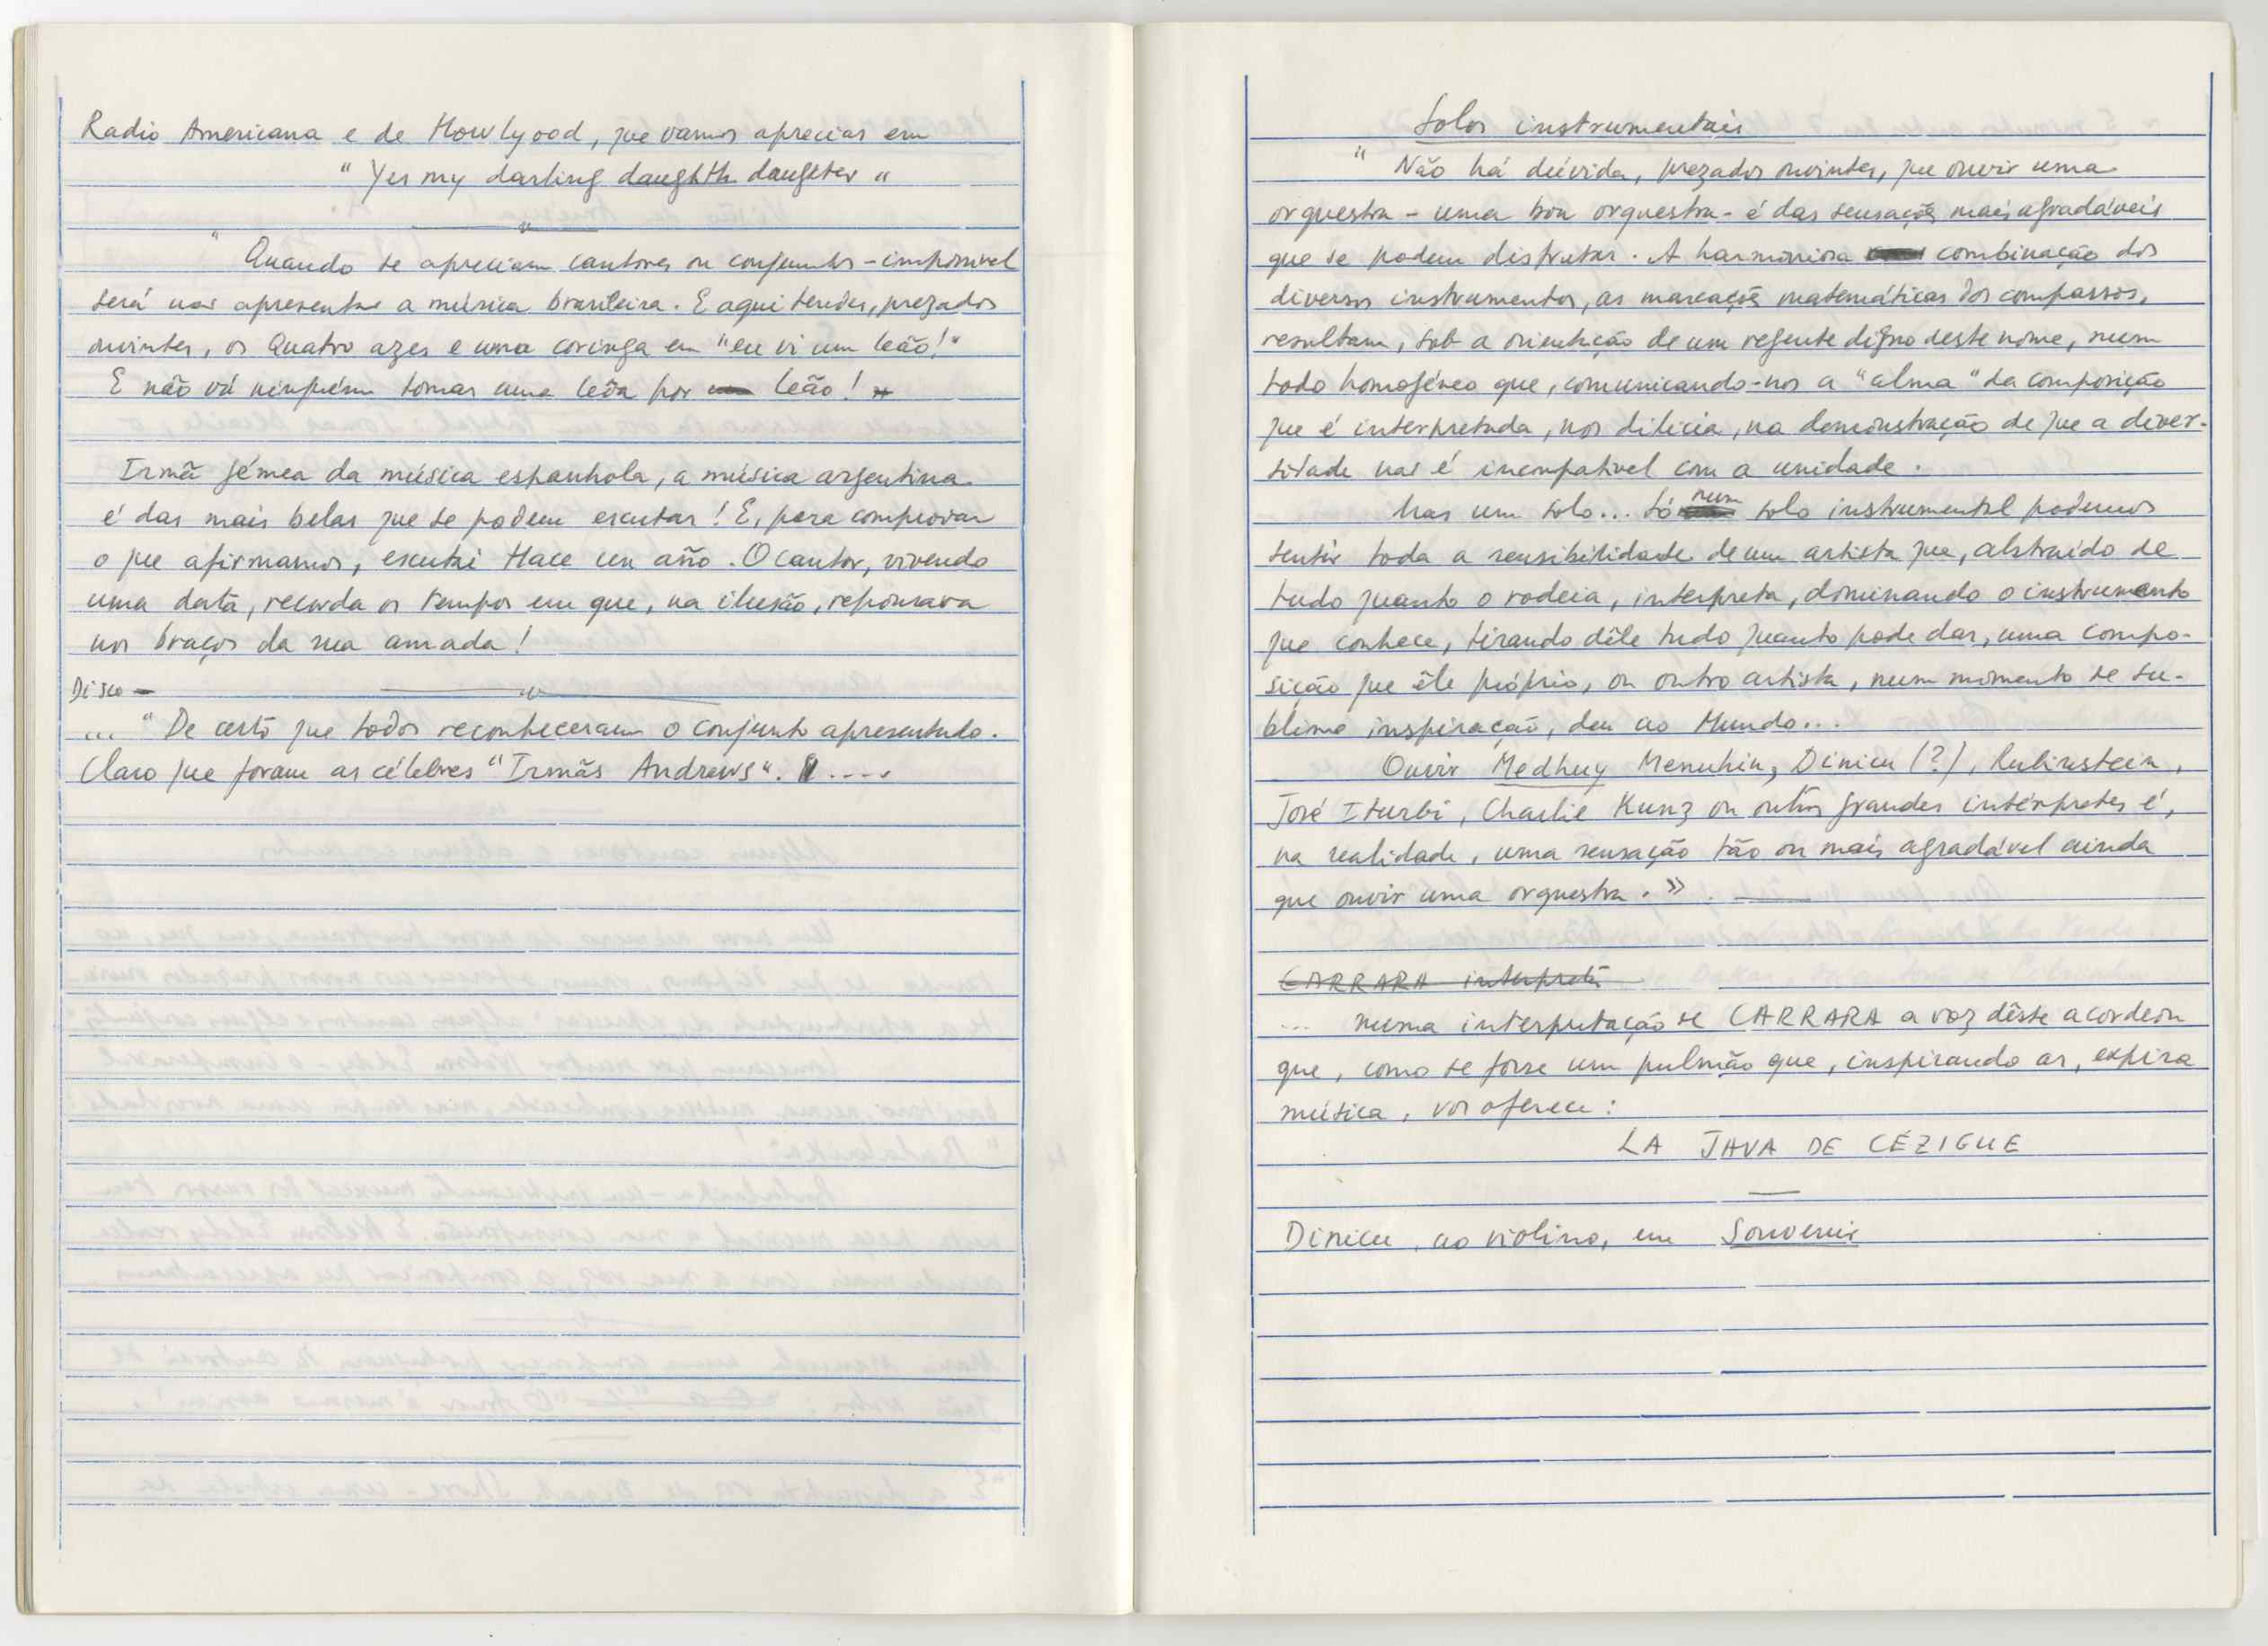 Radio Americana e de Howlyood, que vamos apreciar em
"Yes my darling daughth daughter"
" Quando se apreciam cantores ou conjuntos - impossivel
será nao apresentar a música brasileira. E aqui tendes, prezados
ouvintes, os Quatro azes e uma coringa em "eu vi um leão!"
E não vá ninguém tomar uma leôa por um leão!
Irmã gémea da música espanhola, a música argentina
é das mais belas que se podem escutar! E, para comprovar
o que afirmamos, escutai Hace un año. O cantor, vivendo
uma data, recorda os tempos em que, na ilusão, repousava
nos braços da sua amada!
Disco -
... "De certo que todos reconheceram o conjunto apresentado.
Claro que foram as célebres "Irmãs Andrews". ....
Solos instrumentais
" Não há dúvida, prezados ouvintes, que ouvir uma
orquestra - uma boa orquestra - é das sensações mais agradáveis
que se podem disfrutar. A harmoniosa combinação dos
diversos instrumentos, as marcações matemáticas dos compassos,
resultam, sob a orientação de um regente digno deste nome, num
todo homogéneo que, comunicando-nos a "alma" da composição
que é interpretada, nos dilicia, na demonstração de que a diver-
sidade nao é incompativel com a unidade.
Mas um solo... Só num solo instrumental podemos
sentir toda a sensibilidade de um artista que, abstraído de
tudo quanto o rodeia, interpreta, dominando o instrumento
que conhece, tirando dêle tudo quanto pode dar, uma compo-
sição que êle próprio, ou outro artista, num momento de su-
blime inspiração, deu ao Mundo...
Ouvir Medhuy Menuhin, Dinicu (?), Rubinstein,
José Iturbi, Charlie Kunz ou outros grandes intérpretes é,
na realidade, uma sensação tão ou mais agradável ainda
que ouvir uma orquestra. »
CARRARA interpreta
... numa interpretação de CARRARA a voz dêste acordeon
que, como se fosse um pulmão que, inspirando ar, expira
música, vos oferece:
LA JAVA DE CÉZIGUE
Dinicu, ao violino, em Souvenir